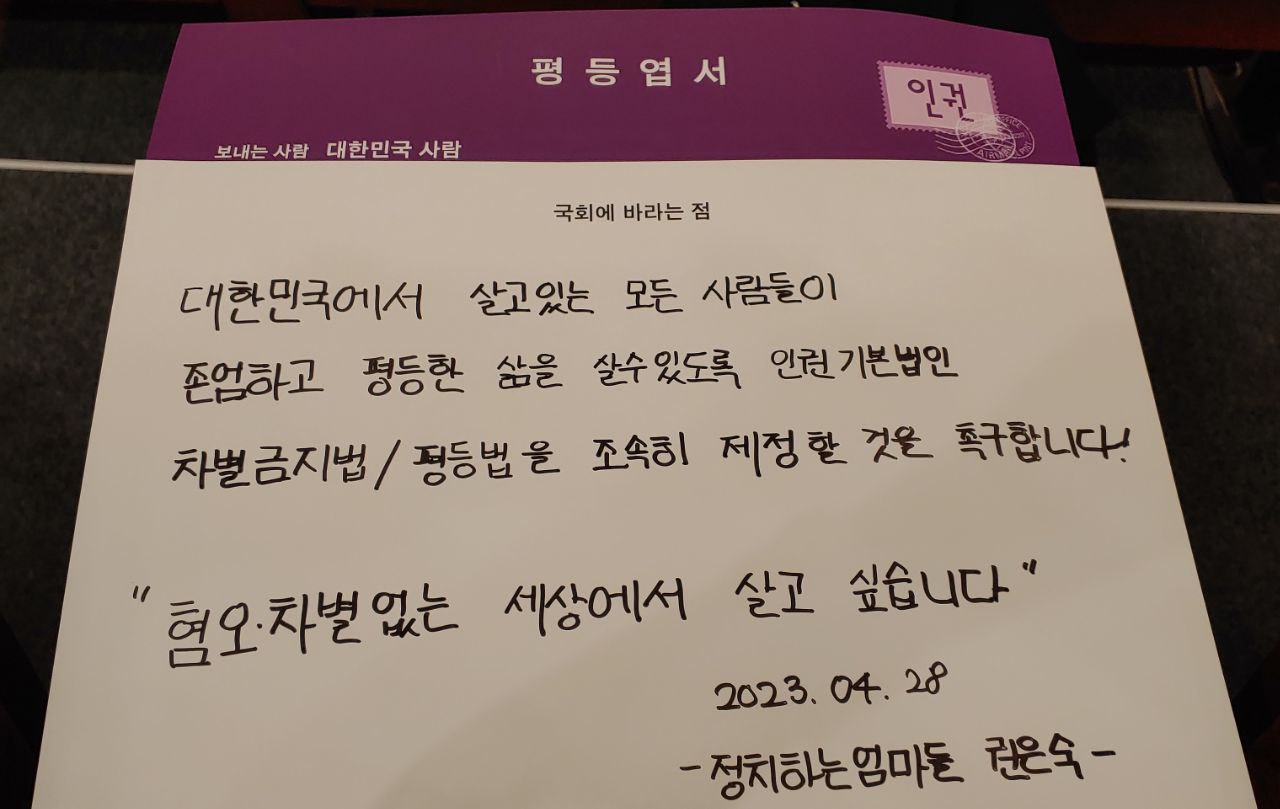 평등엽서
인권
보내는 사람 대한민국 사람
국회에 바라는 점
대한민국에서 살고있는 모든 사람들이
존엄하고 평등한 삶을 살수있도록 인권기본법인
차별금지법/평등법을 조속히 제정할 것을 촉구합니다!
"혐오·차별없는 세상에서 살고 싶습니다"
2023. 04. 28
-정치하는엄마들 권은숙-